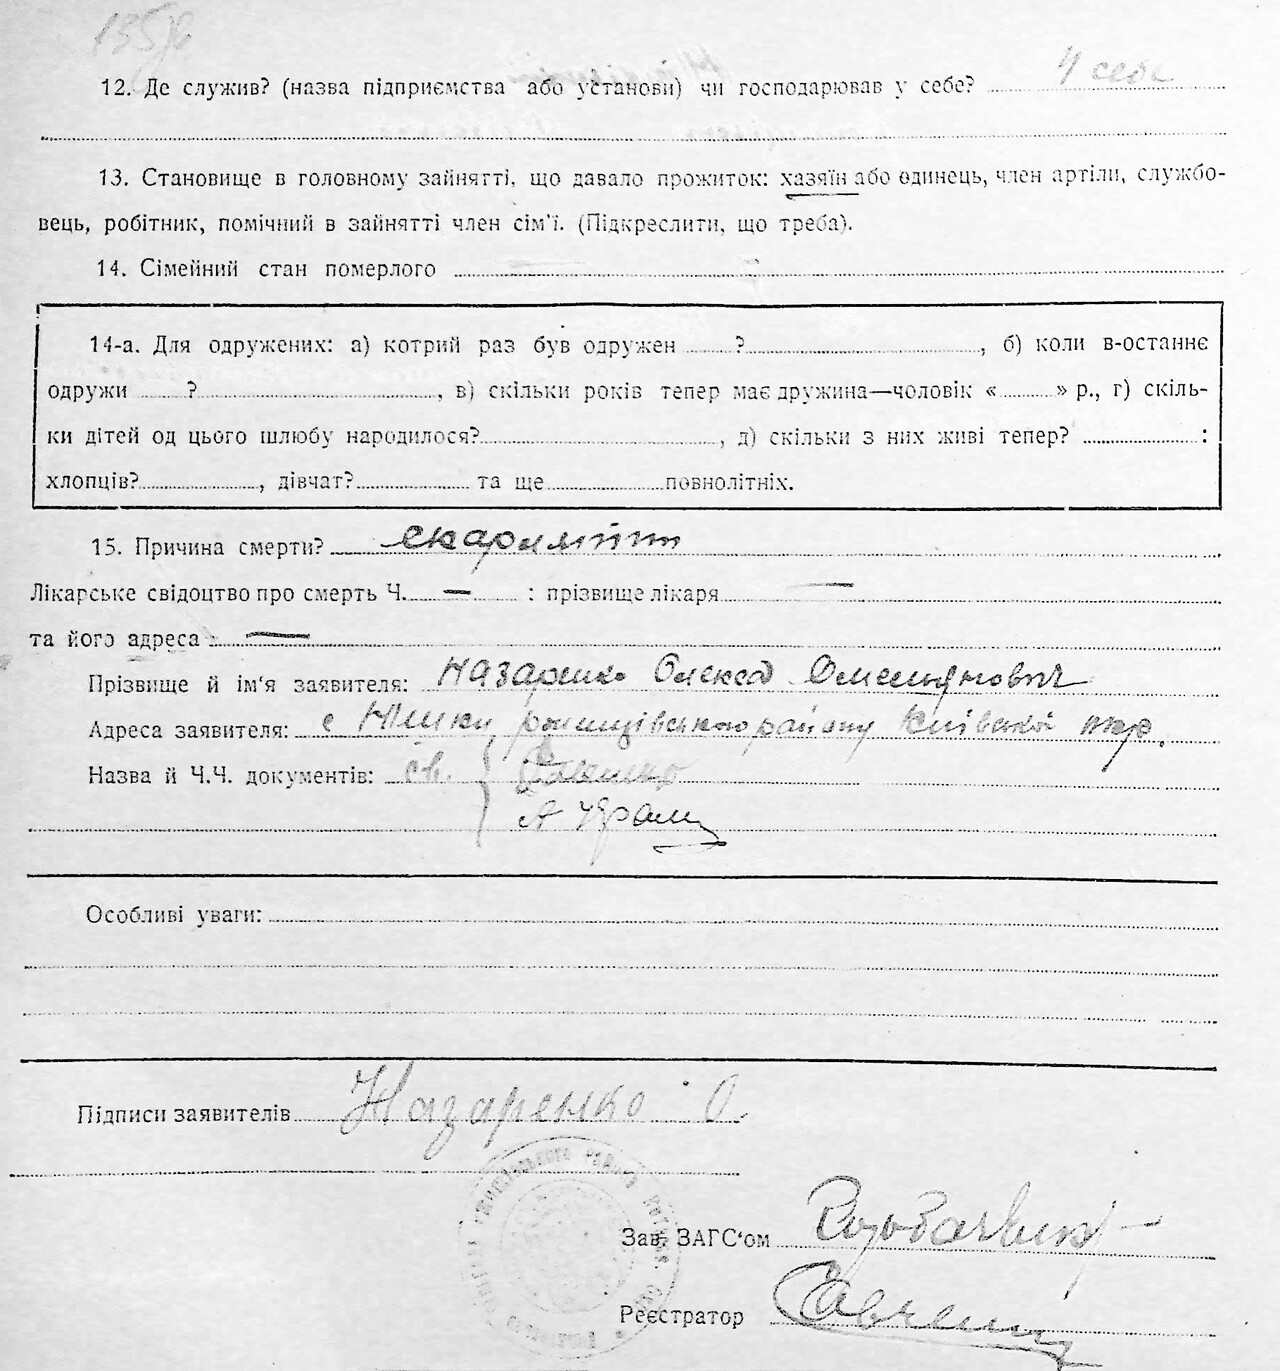 12. Де служив? (назва підприємства або установи) чи господарював у себе? У себе
13. Становище в головному зайнятті, що давало прожиток: хазяїн або одинець, член артіли, службо-
вець, робітник, помічний в зайнятті член сім'ї. (Підкреслити, що треба).
14. Сімейний стан померлого
14-а. Для одружених: а) котрий раз був одружен ?, б) коли в-останнє
одружи ?, в) скільки років тепер має дружина—чоловік « » р., г) скіль-
ки дітей од цього шлюбу народилося?, д) скільки з них живі тепер? :
хлопців?, дівчат? та ще повнолітніх.
15. Причина смерти? скарлятин
Лікарське свідоцтво про смерть Ч. — : прізвище лікаря —
та його адреса : —
Прізвище й ім'я заявителя: Назаренко Олекса Омелянович
Адреса заявителя: с району Київської окр.
Назва й Ч.Ч. документів: св.
Особливі уваги:
Підписи заявителів Назаренко О.
Зав. ЗАГС'ом
Реєстратор